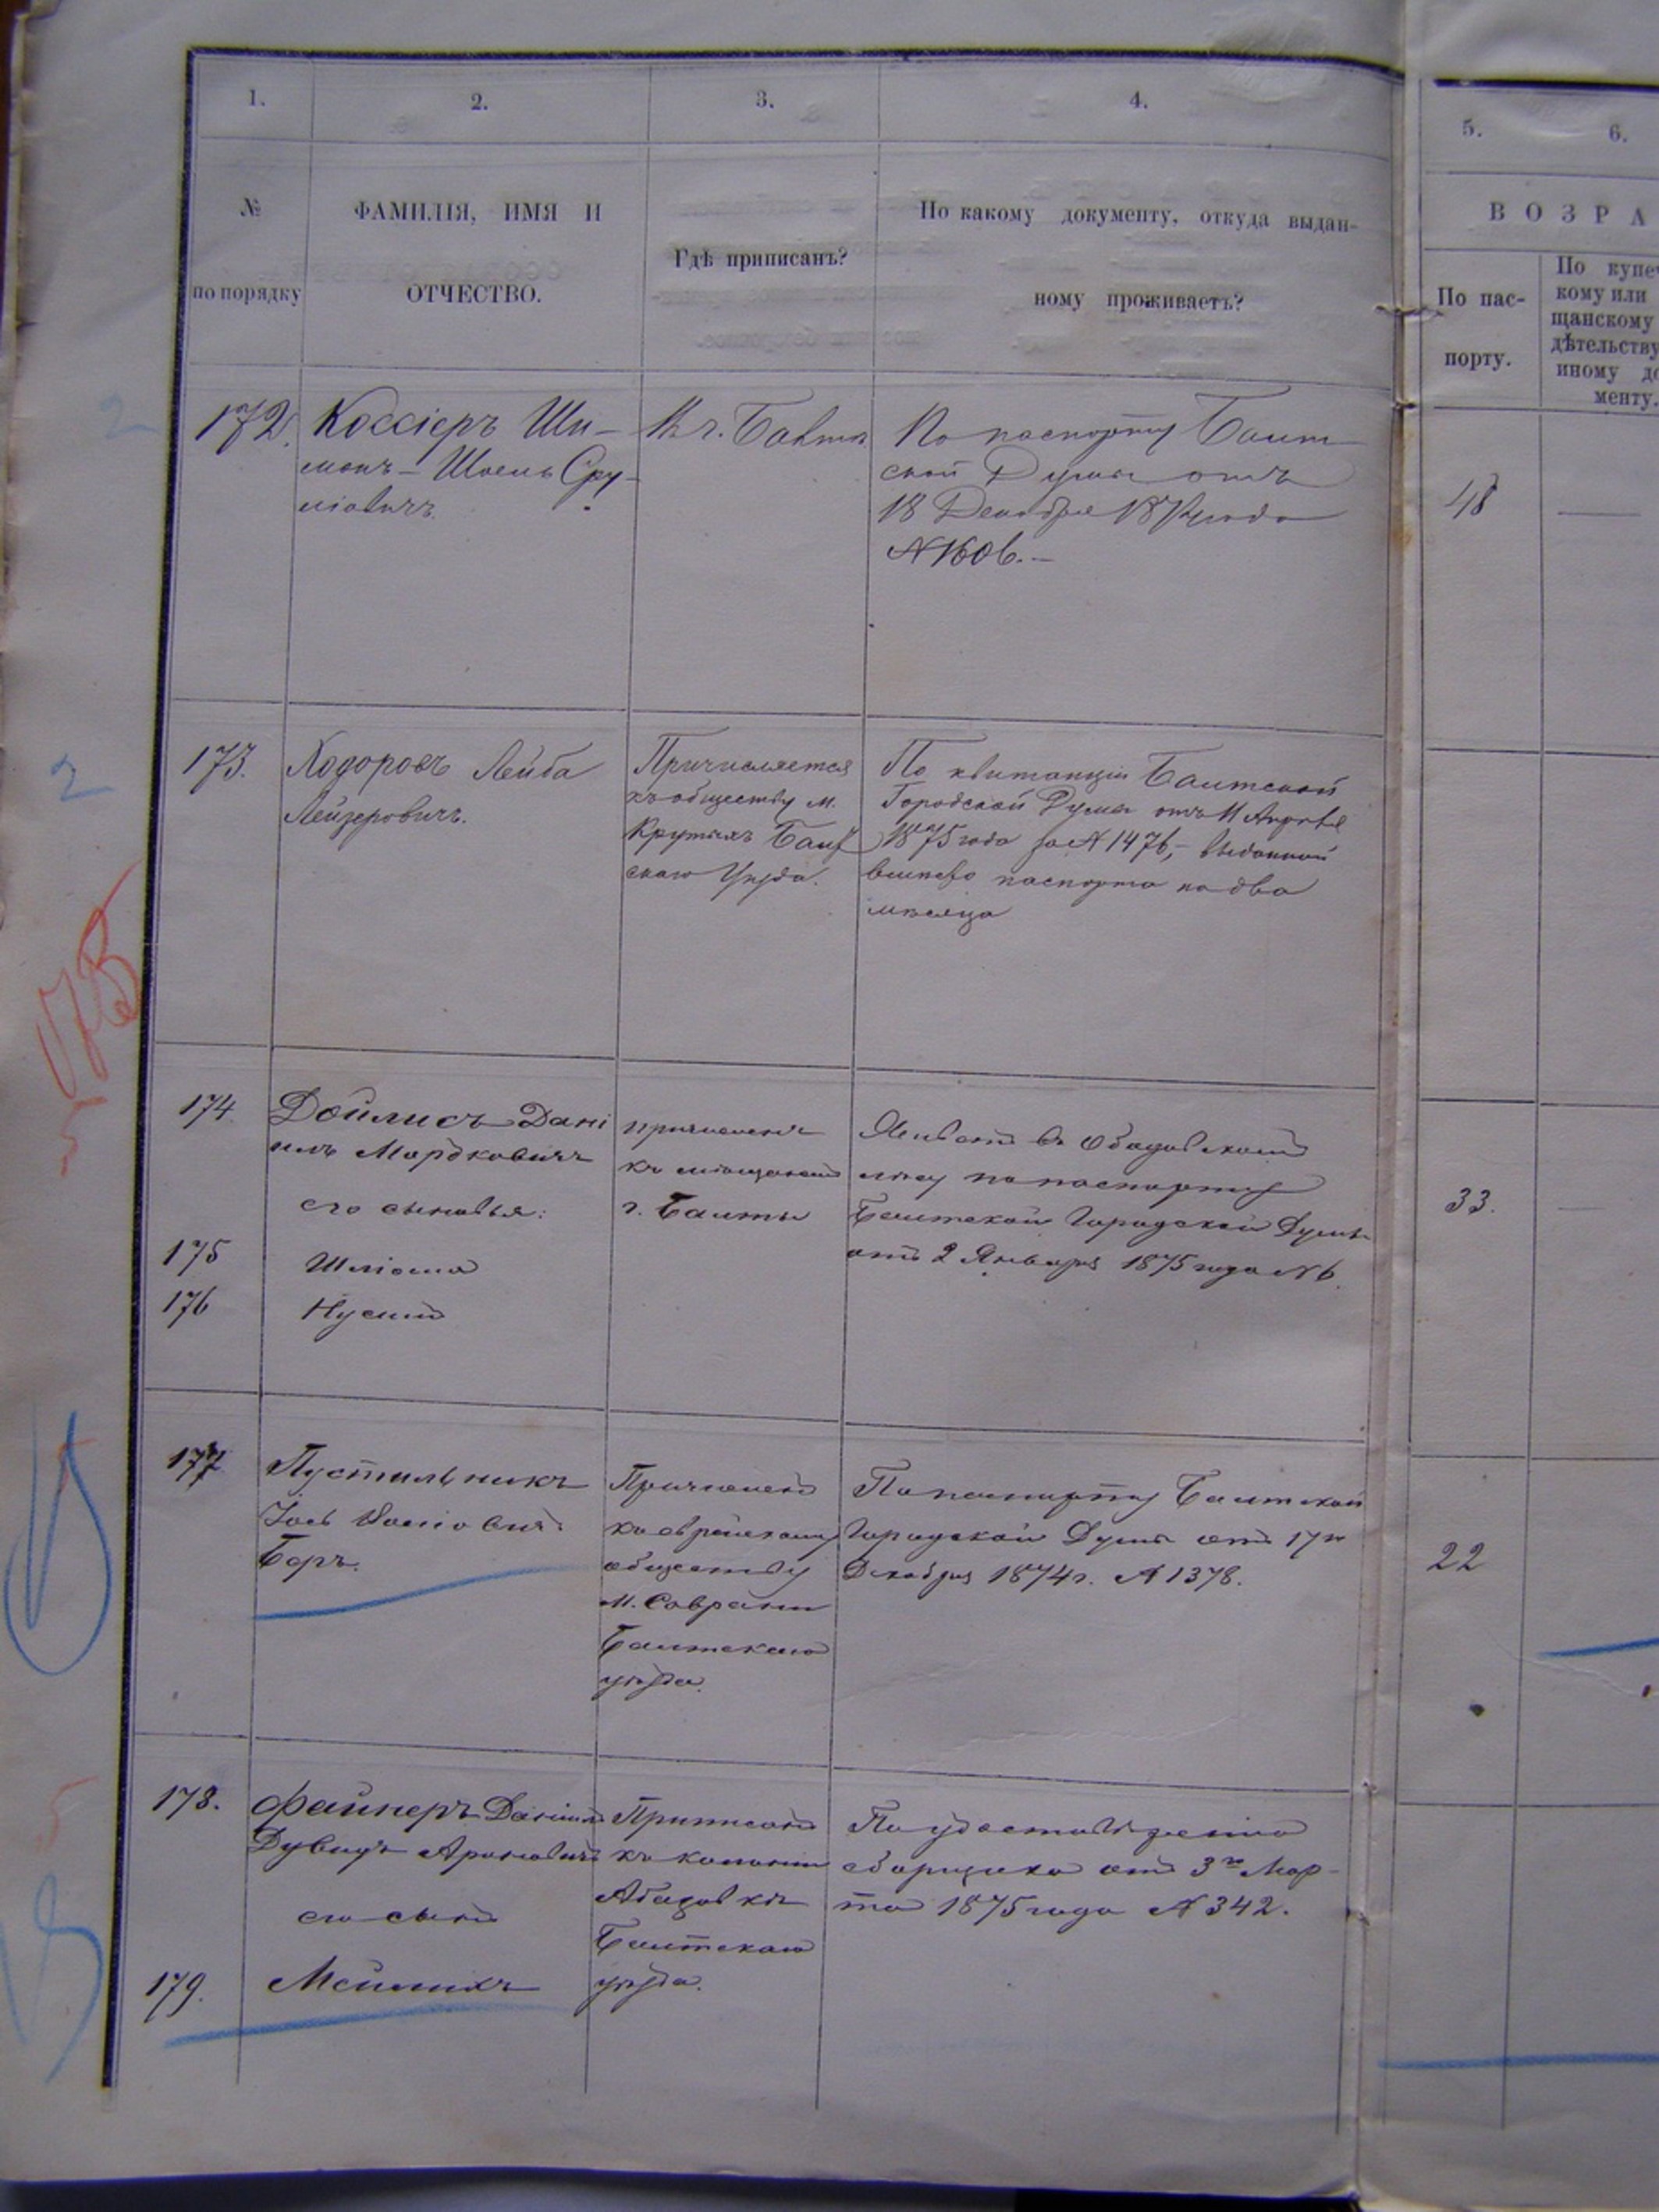 1. 2. 3. 4. 5. 6.
№
по порядку
ФАМИЛІЯ, ИМЯ И
ОТЧЕСТВО.
Гдѣ приписанъ?
По какому документу, откуда выдан-
ному проживаетъ?
ВОЗРА
По пас-
порту.
По купе
кому или
щанскому
дѣтельству
иному до
менту.
2
172.
Коссіеръ Ши-
монъ-Шоель Сру-
ліовичъ
Въ г. Балтѣ
По паспорту Балт-
ской Думы отъ
18 Декабря 1874 года
№ 1606.-
48
2
173.
Ходоровъ Лейба
Лейзеровичъ.
Причисляется
къ обществу м.
Крутыхъ Балт
скаго Уѣзда.
По квитанціи Балтской
Городской Думы отъ 11 Апрѣля
1875 года за № 1476,- выданной
вмѣсто паспорта на два
мѣсяца
174
Дойлисъ Дані
илъ Мордковичъ
его сыновья:
175
Шліома
176
Нусим
причисленъ
къ мѣщанам
г. Балты
Живет въ Ободовском
лѣсу по паспорту
Балтской Городской Думы
отъ 2 Января 1875 года № 6
33.
177
Пустильникъ
Іось
Беръ.
Причислен
къ еврейскому
обществу
м. Саврани
Балтскаго
уѣзда.
По паспорту Балтской
Городской Думы отъ 17го
Декабря 1874 г. № 1378.
22
178.
Файнеръ Даніил
Дувидъ Ароновичъ
его сынъ
179.
Мейлихъ
Приписан
къ колоніи
Абазовкѣ
Балтскаго
уѣзда.
По удостовѣренію
сборщика отъ 3го Мар-
та 1875 года № 342.